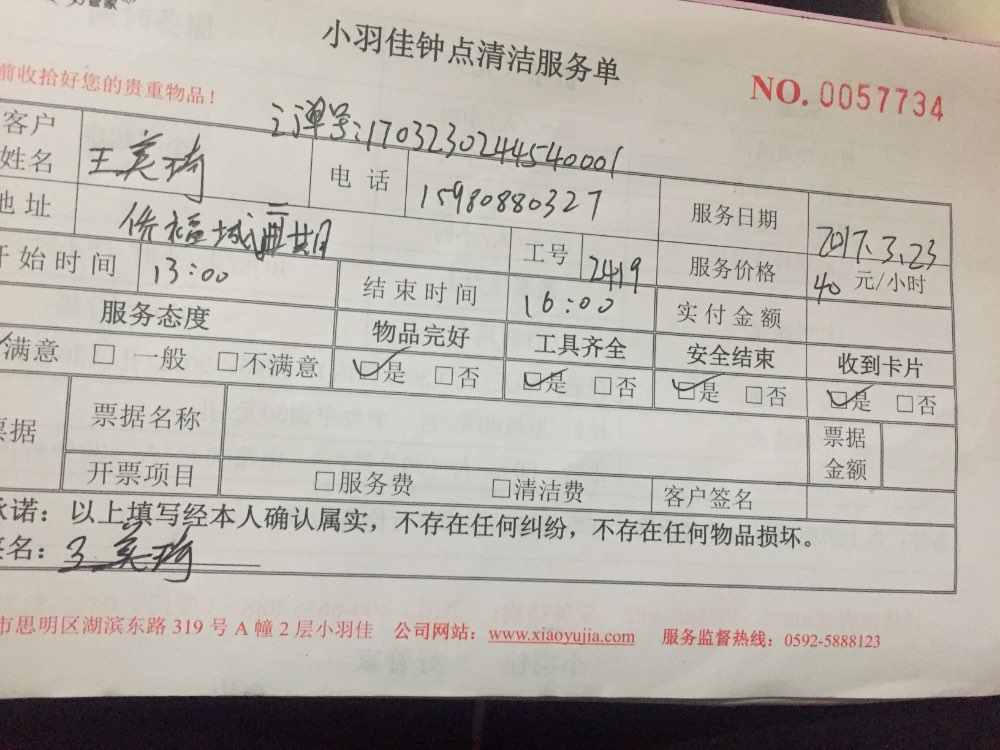 好管家
小羽佳钟点清洁服务单
NO. 0057734
前收拾好您的贵重物品！
订单号:17032302444540001
客户姓名 王美琦 电话 15980880327 服务日期 2017.3.23
地址 侨福城 二期 工号 2419 服务价格 40 元/小时
开始时间 13:00 结束时间 16:00 实付金额
服务态度 物品完好 工具齐全 安全结束 收到卡片
满意 □ 一般 □不满意 ☑是 □否 ☑是 □否 ☑是 □否 ☑是 □否
票据 票据名称 票据金额
开票项目 □服务费 □清洁费 客户签名
承诺：以上填写经本人确认属实，不存在任何纠纷，不存在任何物品损坏。
签名：王美琦
市思明区湖滨东路 319 号 A 幢 2 层小羽佳 公司网站：www.xiaoyujia.com 服务监督热线：0592-5888123